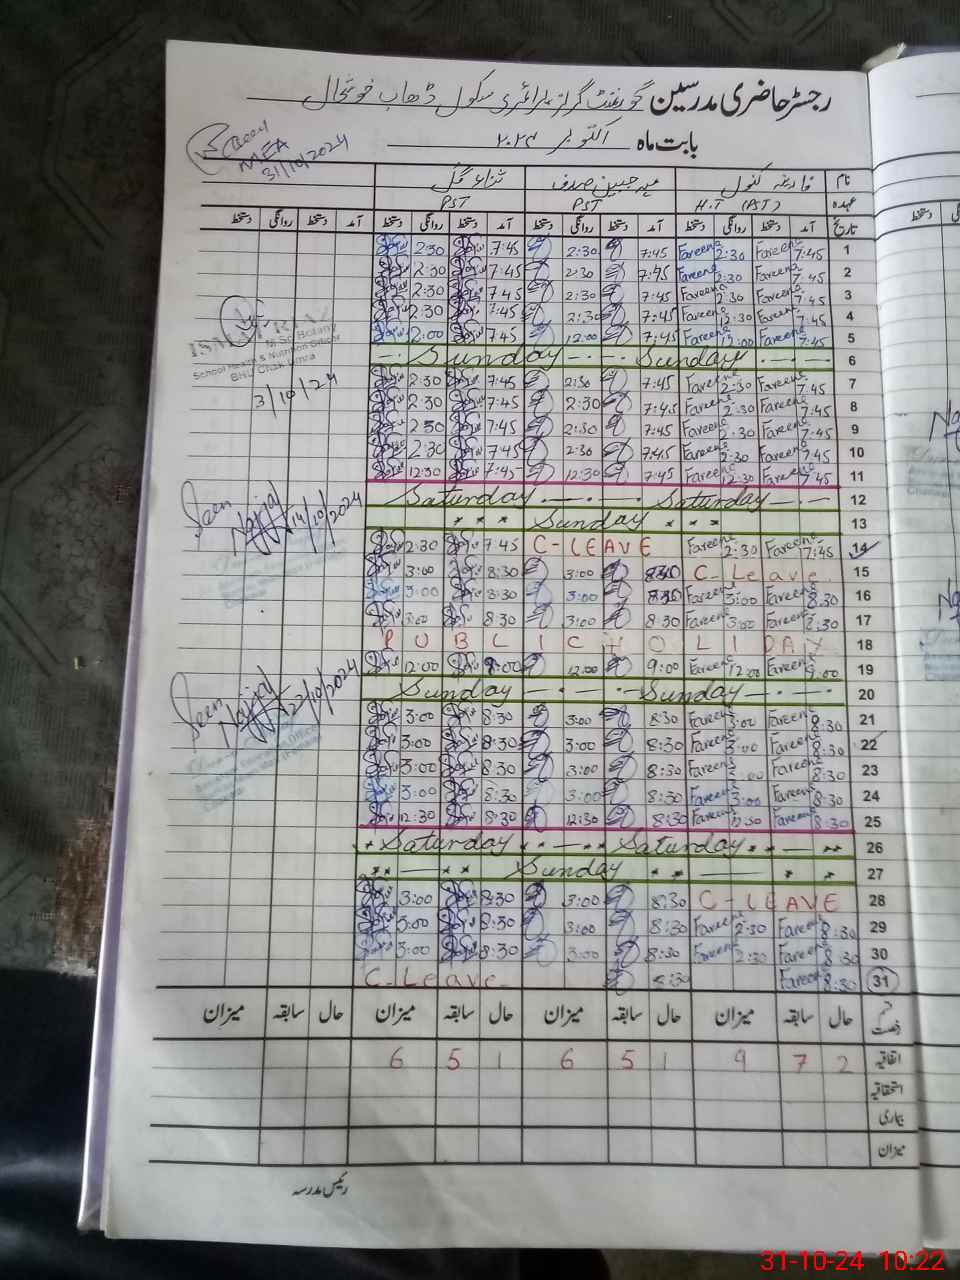 رجسٹر حاضری مدرسین گورنمنٹ گرلز پرائمری سکول ڈھاب خوشحال
بابت ماہ اکتوبر ۲۰۲۴
MEA
31/10/2024
نام فارینہ کنول مہ جبین صدف ثناء گل
عہدہ H.T (PST) PST PST
تاریخ آمد دستخط روانگی دستخط آمد دستخط روانگی دستخط آمد دستخط روانگی دستخط آمد دستخط روانگی دستخط
2:30 7:45 2:30 7:45 Fareena 2:30 Fareena 7:45 1
2:30 7:45 2:30 7:45 Fareena 2:30 Fareena 7:45 2
2:30 7:45 2:30 7:45 Fareena 2:30 Fareena 7:45 3
2:30 7:45 2:30 7:45 Fareena 12:30 Fareena 7:45 4
12:00 7:45 12:00 7:45 Fareena 12:00 Fareena 7:45 5
Sunday Sunday 6
M.Sc Botany
School Health & Nutrition
BHU Chak Umra
3/10/24
2:30 7:45 2:30 7:45 Fareena 2:30 Fareena 7:45 7
2:30 7:45 2:30 7:45 Fareena 2:30 Fareena 7:45 8
2:30 7:45 2:30 7:45 Fareena 2:30 Fareena 7:45 9
2:30 7:45 2:30 7:45 Fareena 2:30 Fareena 7:45 10
12:30 7:45 12:30 7:45 Fareena 12:30 Fareena 7:45 11
Saturday Saturday 12
Sunday 13
Seen
14/10/2024
2:30 7:45 C-LEAVE Fareena 2:30 Fareena 7:45 14
3:00 8:30 3:00 8:30 C-Leave 15
3:00 8:30 3:00 8:30 Fareena 3:00 Fareena 8:30 16
3:00 8:30 3:00 8:30 Fareena 3:00 Fareena 8:30 17
PUBLIC HOLIDAY 18
12:00 9:00 12:00 9:00 Fareena 12:00 Fareena 9:00 19
Sunday Sunday 20
Seen
22/10/2024
3:00 8:30 3:00 8:30 Fareena 3:00 Fareena 8:30 21
3:00 8:30 3:00 8:30 Fareena 3:00 Fareena 8:30 22
3:00 8:30 3:00 8:30 Fareena 3:00 Fareena 8:30 23
3:00 8:30 3:00 8:30 Fareena 3:00 Fareena 8:30 24
12:30 8:30 12:30 8:30 Fareena 12:30 Fareena 8:30 25
Saturday Saturday 26
Sunday 27
3:00 8:30 3:00 8:30 C-LEAVE 28
3:00 8:30 3:00 8:30 Fareena 2:30 Fareena 8:30 29
3:00 8:30 3:00 8:30 Fareena 2:30 Fareena 8:30 30
C-Leave 8:30 Fareena 8:30 31
قسم رخصت حال سابقہ میزان حال سابقہ میزان حال سابقہ میزان حال سابقہ میزان
اتفاقیہ 2 7 9 1 5 6 1 5 6
استحقاقیہ
بیماری
میزان
رئیس مدرسہ
31-10-24 10:22